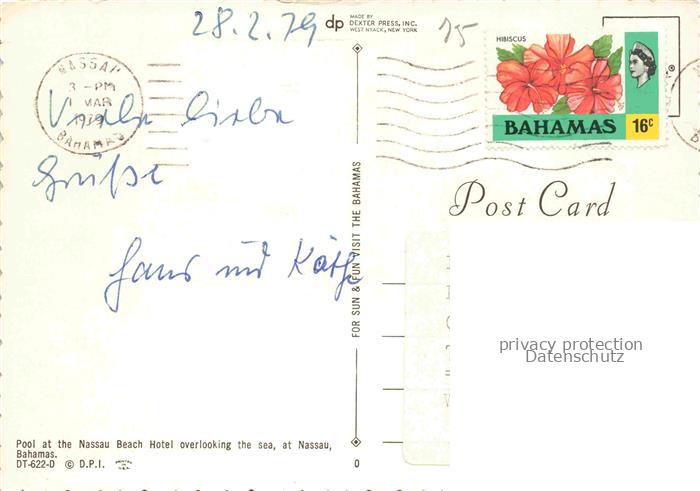 28.2.79
dp MADE BY
DEXTER PRESS, INC.
WEST NYACK, NEW YORK
15
HIBISCUS
BAHAMAS 16c
NASSAU
3 - PM
1 MAR
1979
BAHAMAS
Viele liebe
Grüße
Hans und Käthe
Post Card
FOR SUN & FUN VISIT THE BAHAMAS
privacy protection
Datenschutz
Pool at the Nassau Beach Hotel overlooking the sea, at Nassau,
Bahamas.
DT-622-D © D.P.I.
0